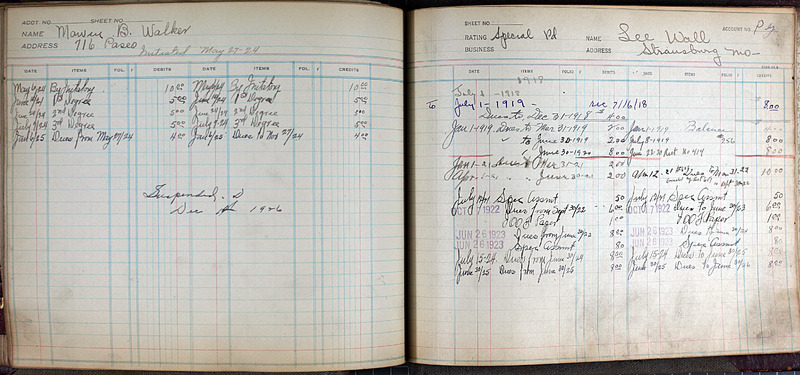 ACCT NO. SHEET NO.
NAME B. Walker
ADDRESS 716 Paseo
Initiated May 27-24
DATE ITEMS FOL. DEBITS DATE ITEMS FOL. CREDITS
May 27/24 By Initation 10 00 May 27/24 By Initation 10 00
1st Degree 5 00 1st Degree 5 00
June 24/24 2nd Degree 5 00 June 24/24 2nd Degree 5 00
July 8/24 3rd Degree 5 00 July 8-24 3rd Degree 5 00
Jan 6/25 Dues from May 27/24 4 00 Jan 6/25 Dues to Nov 27/24 4 00
Suspended
Dec 1926
SHEET NO. ACCOUNT NO.
RATING Special Pd NAME Lee Wall
BUSINESS ADDRESS Strausburg Mo-
DATE ITEMS FOLIO DEBITS DATE ITEMS FOLIO CREDITS
1918
July 1 -1918
To July 1-1919 7/16/18 8 00
Dues to Dec 31-1918 4 00
Jan 1-1919 Dues to Mar 31-1919 2 00 Jan 1-1919 Balance 4 00
" to June 30-1919 2 00 July 8-1919 256 8 00
" June 30-1920 8 00 No 414 8 00
Jan 1-21 Dues Mar 31-21 2 00
Apr 1-21 " " June 30-21 2 00 10 00
Spec Assmt 50 Spec Assmt 50
OCT 7 1922 Dues from Sept 30/22 6 00 OCT 7 1922 Dues to June 30/23 6 00
1 00 1 00
JUN 26 1923 Dues from June 30/23 8 00 JUN 26 1923 Dues to June 30/24 8 00
JUN 26 1923 Spec Assmt 80 JUN 26 1923 Spec Assmt 80
July 15-24 Dues from June 30/24 8 00 July 15-24 Dues to June 30/25 8 00
June 30/25 Dues from June 30/25 8 00 June 30/25 Dues to June 30/26 8 00